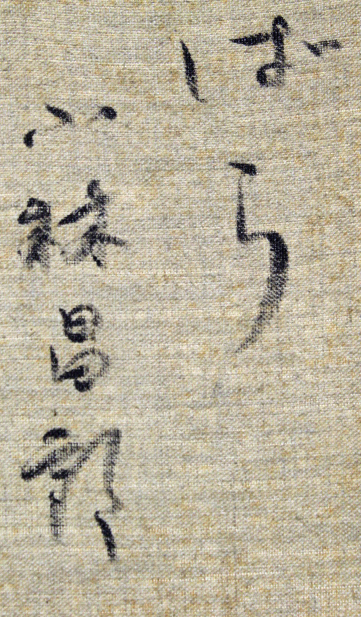 ばら
小林昌郎